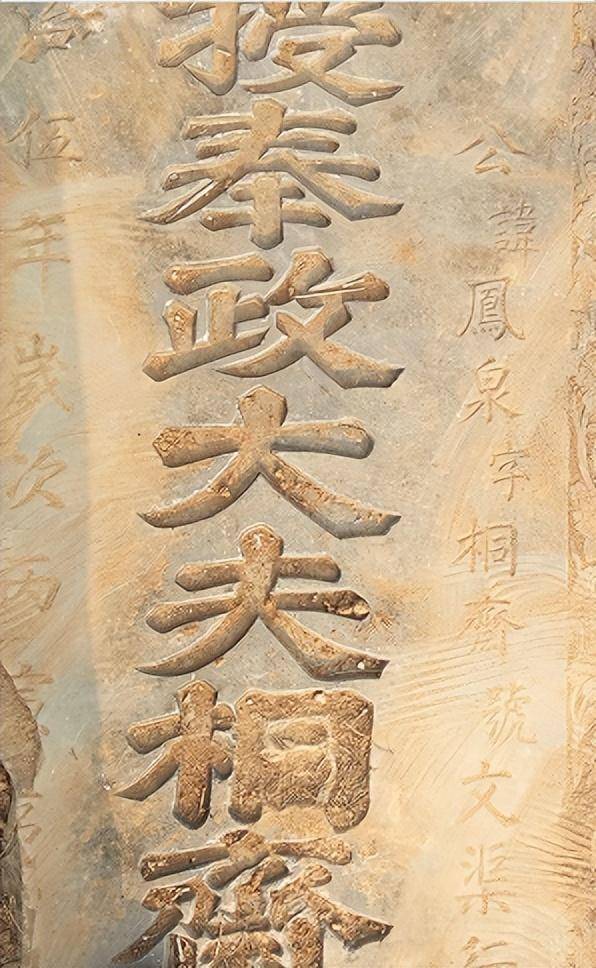 公諱鳳泉字桐齋號文渠行
授奉政大夫桐齋
治伍年歲次丙寅